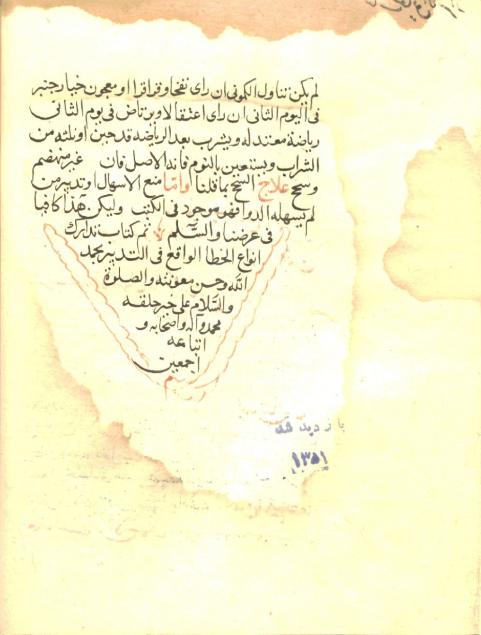 لم يكن تناول الكمونى ان راى نفخا وقراقرا او معجون خيارجنبر
فى اليوم الثانى ان راى اعتقالا ويرتاض فى يوم الثانى
رياضة معتدله ويشرب بعد الرياضه قدحين او ثلثه من
الشراب ويستعين بالنوم فانه الاصل فان غير منهضم
وسحج علاج السحج بما قلنا واما منع الاسهال وتدبير من
لم يسهله الدوا فهو موجود فى الكتب وليكن هذا كافيا
فى غرضنا والسلم تم كتاب تدارك
انواع الخطا الواقع فى التدبير بحمد
الله وحسن معونته والصلوة
والسلام على خير خلقه
محمد وآله واصحابه و
اتباعه
اجمعين
باز دید شد
۱۳۵۱